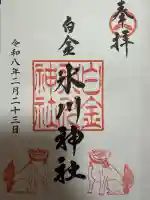 奉拝
白金
氷川神社
白金氷川神社
令和八年二月二十三日